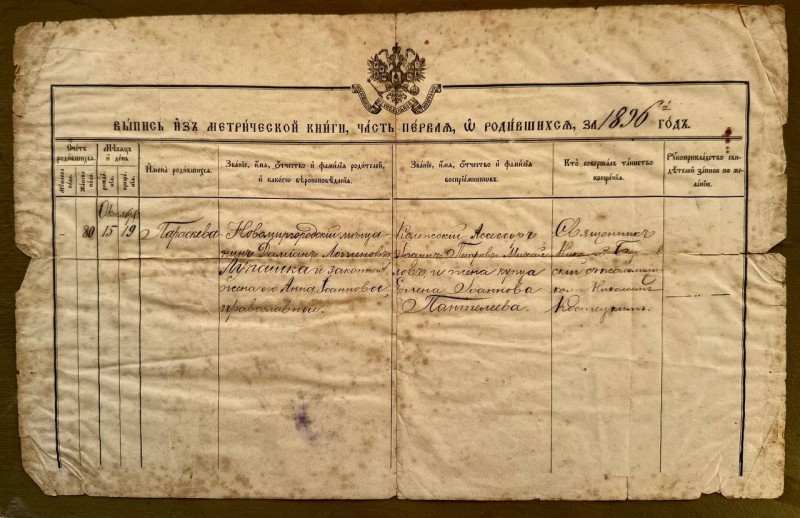 ВЫПИСЬ ИЗЪ МЕТРИЧЕСКОЙ КНИГИ, ЧАСТЬ ПЕРВАЯ, Ѡ РОДИВШИХСЯ, ЗА 1896 й ГОДЪ.
Счетъ родившихся.
Мужеска пола.
Женска пола.
Мѣсяцъ и день
рожденія.
крещенія.
Имена родившихся.
Званіе, имя, отчество и фамилія родителей,
и какого вѣроисповѣданія.
Званіе, имя, отчество и фамилія
воспріемниковъ.
Кто совершалъ таинство
крещенія.
Рукоприкладство сви-
дѣтелей записи по же-
ланію.
Октябрь
- 80 15 19
Параскева
Новомиргородскій мѣща-
нинъ Даміанъ Логиновъ
и законная
жена его Анна Іоаннова,
православные.
Коллежскій Ассесоръ
Іоаннъ Петровъ Михай-
ловъ и жена купца
Елена Іоаннова
Пантелеева.
Священникъ
Николай
съ псаломщи-
комъ Николаемъ
Костецкимъ.